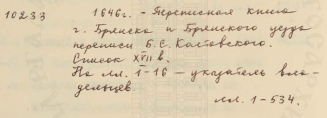 10233 1646г. - Переписная книга
г. Брянска и Брянского уезда
переписи Б.С. Колтовского.
Список XVII в.
На лл. 1-16 - указатель вла-
дельцев
лл. 1-534.